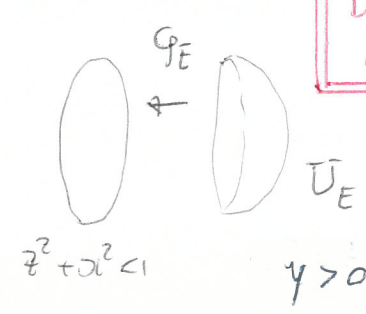 φ_E
←
U_E
z² + x² < 1
y > 0